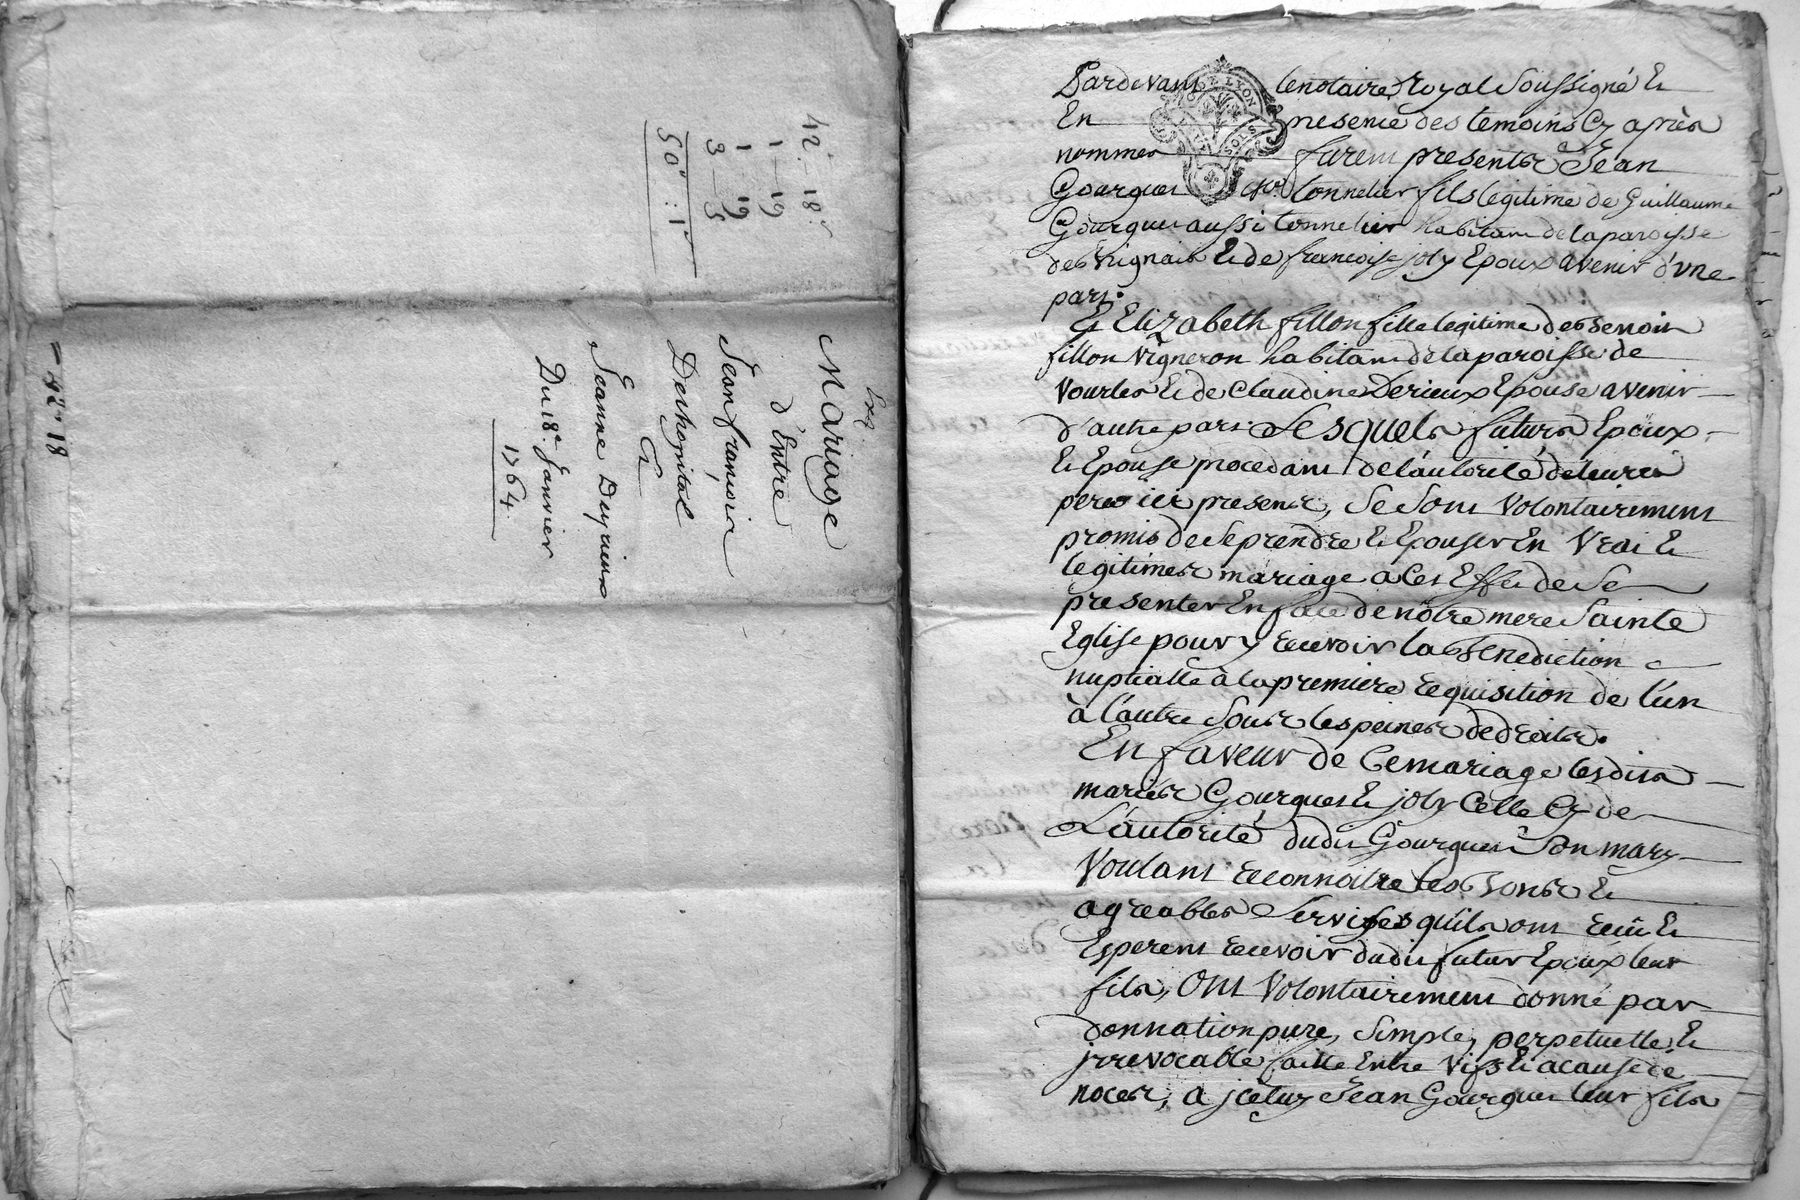 42# - 18s
1 - 19
1 - 19
3 - 5
50# : 1s
Exg
Mariage
d'Entre
Jean françois
Deshopital
Et
Jeanne Duyrieux
Du 18e Janvier
1764
42# 18
DE LYON
SOLS
Pardevant lenotaire Royal Soussigné Et
En presence des temoins Cy après
nommés furent presents Jean
Gourgues tonnelier fils legitime de Guillaume
Gourgues aussi tonnelier habitant delaparoisse
des Vignais Et de francoise joly Epoux avenir d'vne
part.
Et Elizabeth fillon fille legitime de Benoit
fillon Vigneron habitant delaparoisse de
Vourles Et de Claudine Derieux Epouse avenir
d'autre part. Lesquels futurs Epoux
Et Epouse procedant del'autorité deleurs
peres ici presents, Se Sont Volontairement
promis de Seprendre Et Epouser En Vrai Et
legitimes mariage a Cet Effet de Se
presenter En face de nôtre mere Sainte
Eglise pour y recevoir la Benediction
nuptialle à lapremiere requisition de l'un
à l'autre Sous les peines de droits.
En faveur de Cemariage lesdits
mariés Gourgues Et joly Celle Cy de
L'autorité dudit Gourgues Son mary
Voulant reconnoitre les Bons Et
agreables Services qu'ils ont reçu Et
Esperent recevoir dudit futur Epoux leur
fils, Ont Volontairement donné par
donnation pure, Simple, perpetuelle Et
jrrevocable faitte Entre Vifs Et acause de
noces, a jceluy Jean Gourgues leur fils